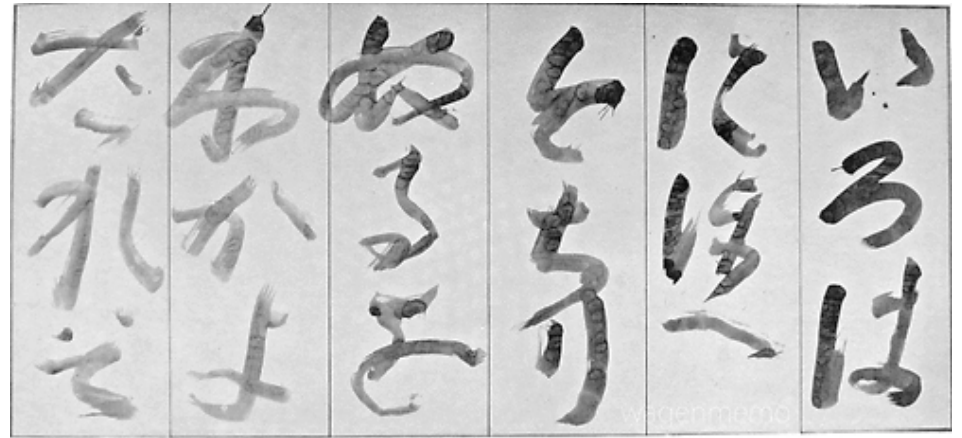 いろは
にほへ
とちり
ぬるを
わかよ
たれそ
wagenmemo